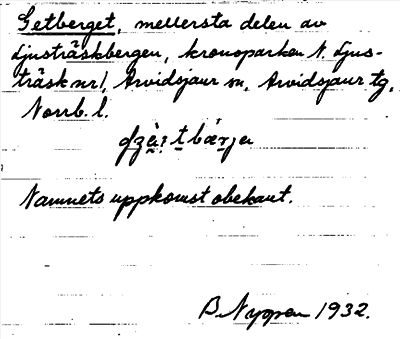 Getberget, mellersta delen av
Ljusträskbergen, kronoparken N. Ljus-
träsk nr 1, Arvidsjaur sn, Arvidsjaur tg,
Norrb. l.
Namnets uppkomst obekant.
B. Nygren 1932.